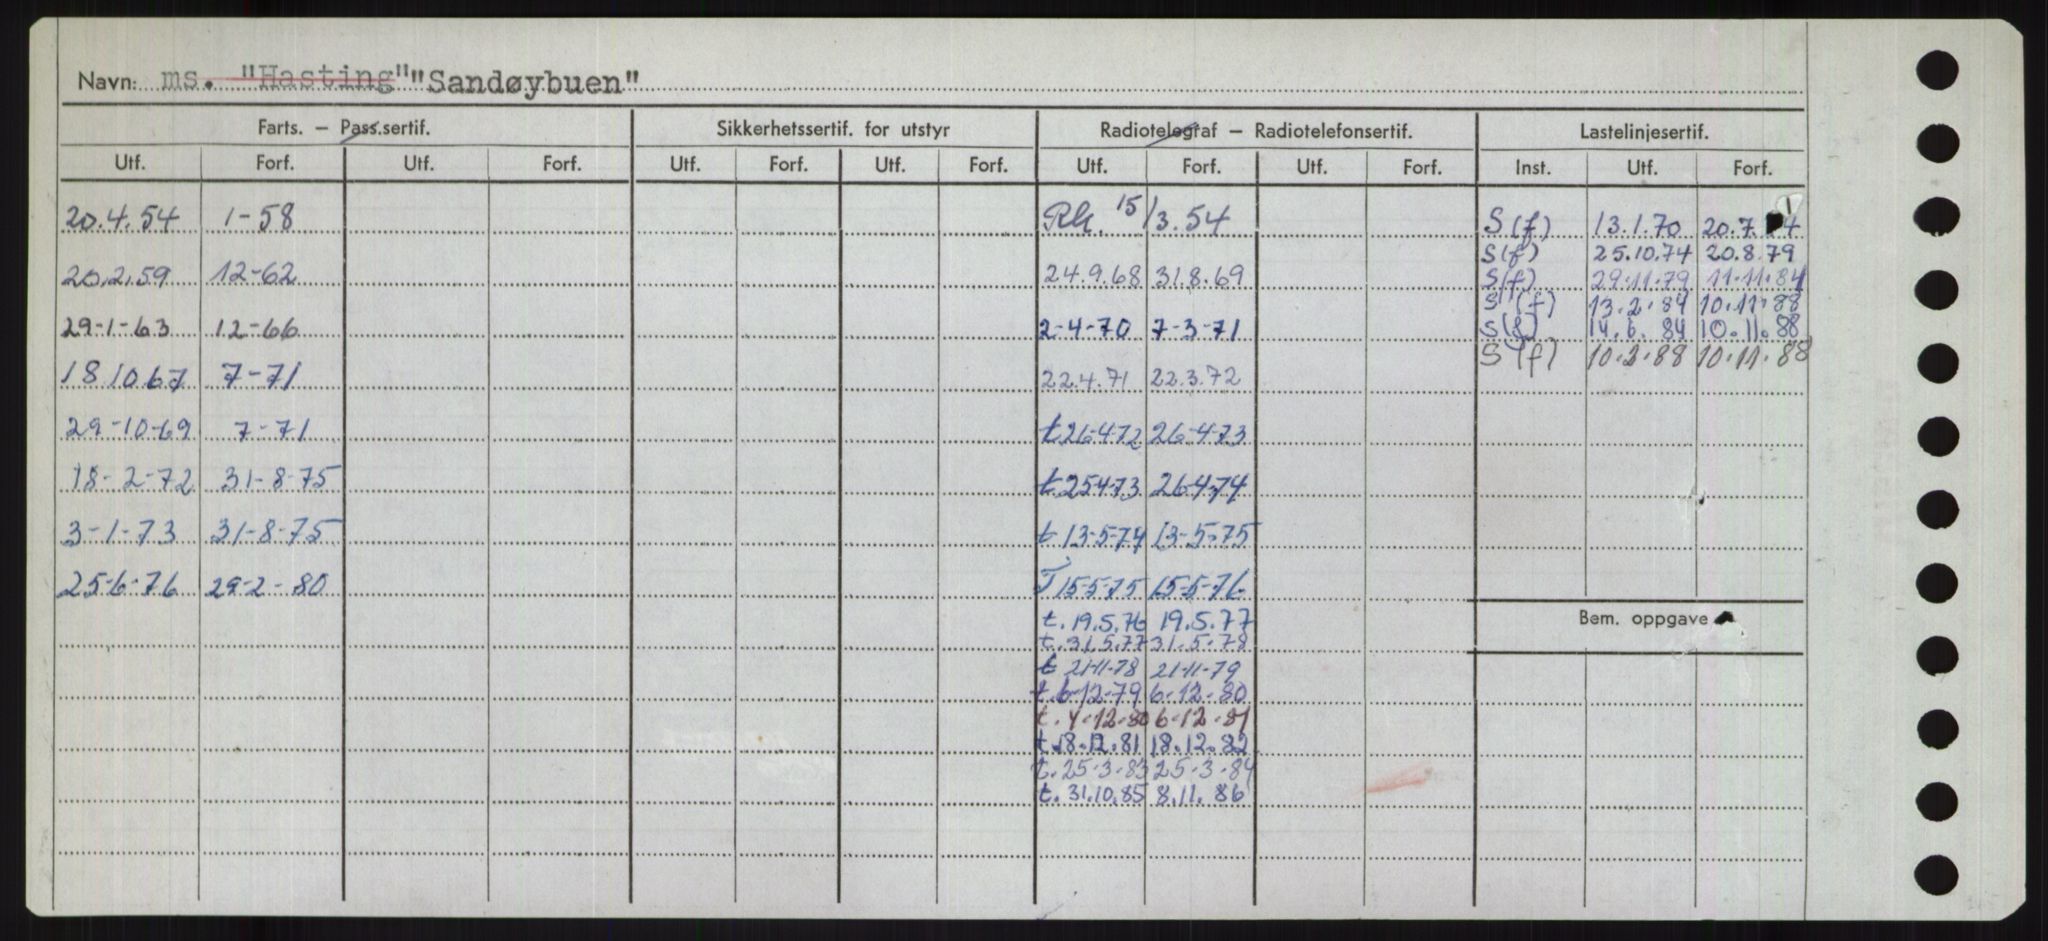 Navn: ms. "Hasting" "Sandøybuen"
Farts. – Pass.sertif. Sikkerhetssertif. for utstyr Radiotelegraf – Radiotelefonsertif. Lastelinjesertif.
Utf. Forf. Utf. Forf. Utf. Forf. Utf. Forf. Utf. Forf. Utf. Forf. Inst. Utf. Forf.
20.4.54 1-58
20.2.59 12-62
29-1-63 12-66
18 10 67 7-71
29-10-69 7-71
18-2-72 31-8-75
3-1-73 31-8-75
25-6-76 29-2-80
15/3.54
24.9.68 31.8.69
2-4-70 7-3-71
22.4.71 22.3.72
t 26-4-72 26-4-73
t 25-4-73 26-4-74
t 13-5-74 13-5-75
T 15-5-75 15-5-76
t. 19.5.76 19.5.77
t. 31.5.77 31.5.78
t 21-11-78 21-11-79
t. 6-12-79 6-12-80
t. 4-12-80 6-12-81
t. 18.12.81 18.12.82
t. 25-3-83 25-3-84
t. 31.10.85 8.11.86
S(f) 13.1.70 20.7.74
S(f) 25.10.74 20.8.79
S(f) 29.11.79 11.11.84
S(f) 13.2.84 10.11.88
S(f) 14.6.84 10.11.88
S(f) 10.2.88 10.11.88
Bem. oppgave